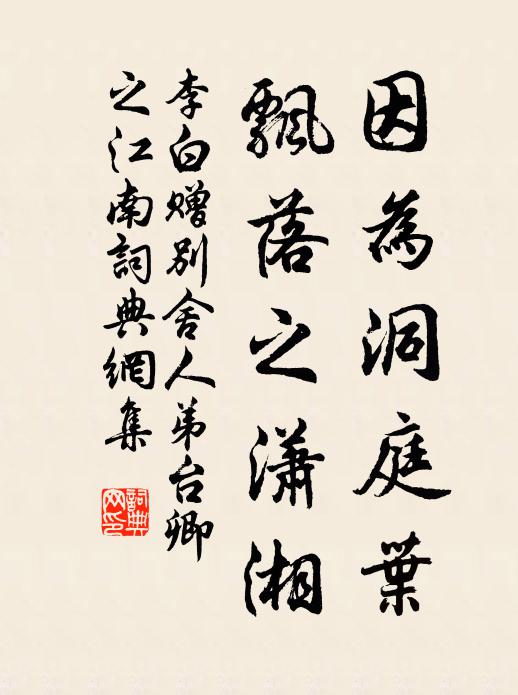 因為洞庭葉
飄落之瀟湘
李白贈別舍人弟台卿
之江南詞典網集
詞典
网印